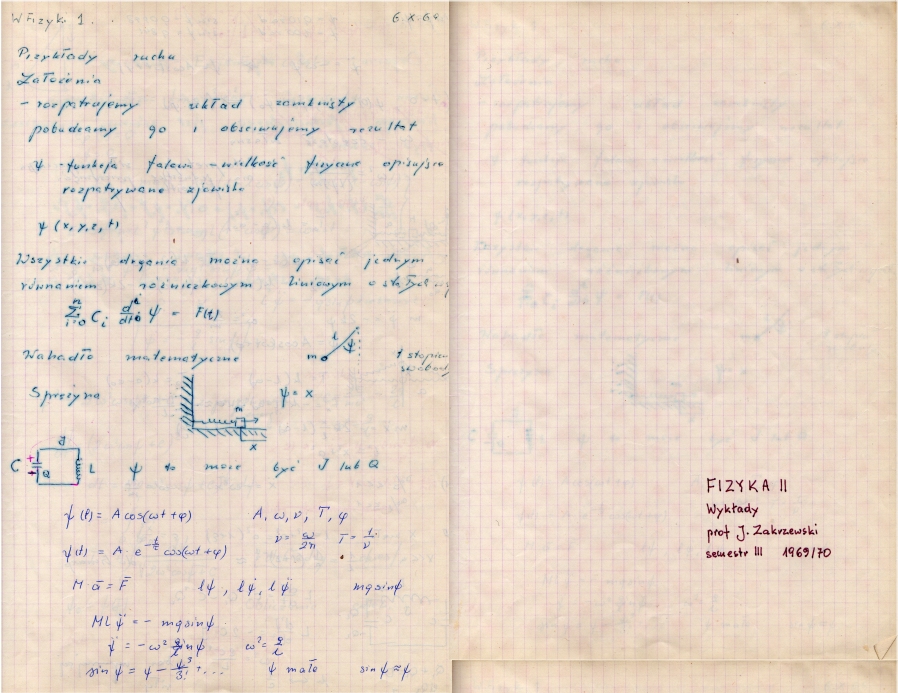 W Fizyk. 1.
6. X. 69
Przykłady ruchu
Założenia
- rozpatrujemy układ zamknięty
pobudzamy go i obserwujemy rezultat
ψ - funkcja falowa - wielkość fizyczna opisująca
rozpatrywane zjawisko
ψ (x, y, z, t)
Wszystkie drgania można opisać jednym
równaniem różniczkowym liniowym o stałych
n Σ i=0 C_i d^i/dt^i ψ = F(t)
Wahadło matematyczne
l ψ m
1 stopień
swobody
Sprężyna
m x
ψ = x
J C + - Q L
ψ to może być J lub Q
ψ(t) = A cos(ωt + φ) A, ω, ν, T, φ
ν = ω/2π T = 1/ν
ψ(t) = A · e cos(ωt + φ)
M ā = F̄ lψ, lψ̇, lψ̈ mg sin ψ
M L ψ̈ = - mg sin ψ
ψ̈ = - ω² sin ψ ω² = g/l
sin ψ = ψ - ψ³/3! + ... ψ małe sin ψ ≈ ψ
FIZYKA II
Wykłady
prof J. Zakrzewski
semestr III 1969/70